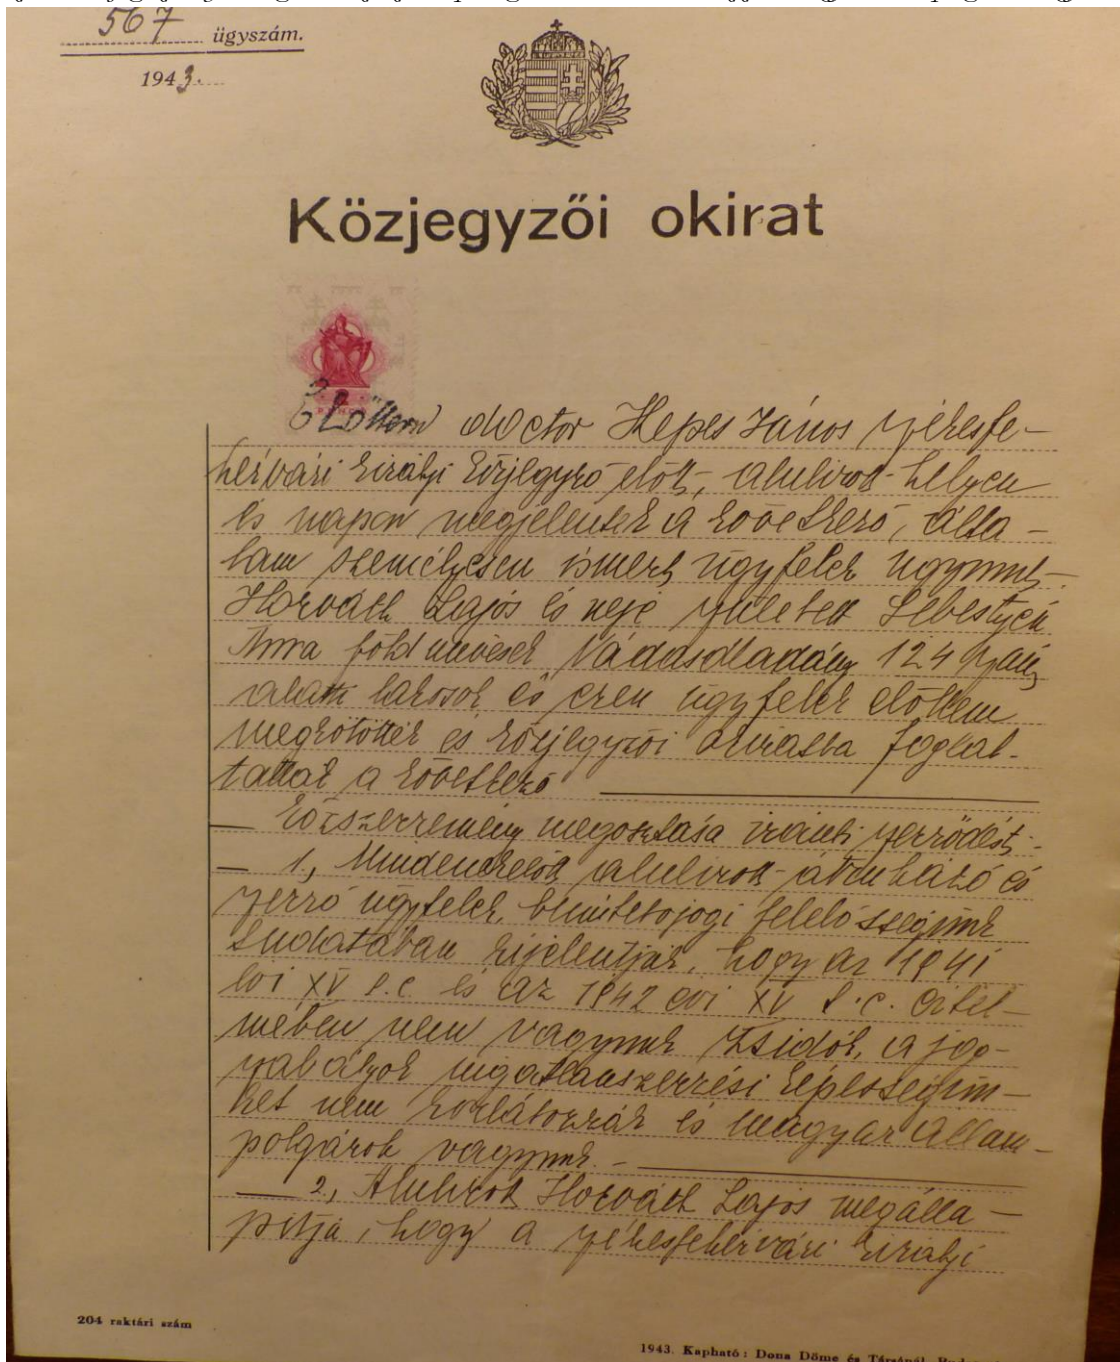 567 ügyszám.
1943.
Közjegyzői okirat
Előttem doctor Hepes János székesfe-
hérvári királyi közjegyző előtt, alulirott helyen
és napon megjelentek a következő, álta-
lam személyesen ismert ügyfelek ugymint
Horváth Lajos és neje született Sebestyén
Anna földmüvesek Nádasdladány 124 szám
alatti lakosok és ezen ügyfelek előttem
megkötötték és közjegyzői okiratba foglal-
tatták a következő
— közszerzemény megosztása iránti szerződést.-
— 1, Mindenekelőtt alulirott átruházó és
szerző ügyfelek, büntetőjogi felelősségünk
tudatában kijelentjük, hogy az 1941
évi XV t.c. és az 1942 évi XV t.c. értel-
mében nem vagyunk zsidók, a jog-
szabályok ingatlanszerzési képességün-
ket nem korlátozzák és magyar állam-
polgárok vagyunk. —
— 2, Alulirott Horváth Lajos megálla-
pitja, hogy a székesfehérvári királyi
204 raktári szám
1943. Kapható: Dona Döme és Társánál,